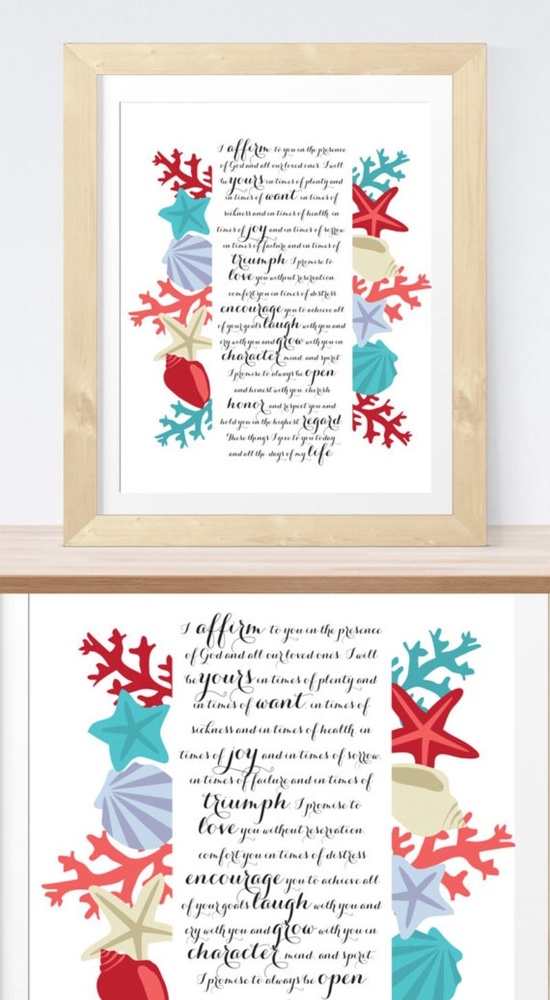 I affirm to you in the presence
of God and all our loved ones. I will
be yours in times of plenty and
in times of want, in times of
sickness and in times of health, in
times of joy and in times of sorrow,
in times of failure and in times of
triumph. I promise to
love you without reservation,
comfort you in times of distress
encourage you to achieve all
of your goals laugh with you and
cry with you and grow with you in
character, mind, and spirit.
I promise to always be open
and honest with you, cherish
honor and respect you and
hold you in the highest regard
These things I give to you today
and all the days of my life
I affirm to you in the presence
of God and all our loved ones. I will
be yours in times of plenty and
in times of want, in times of
sickness and in times of health, in
times of joy and in times of sorrow,
in times of failure and in times of
triumph. I promise to
love you without reservation,
comfort you in times of distress
encourage you to achieve all
of your goals laugh with you and
cry with you and grow with you in
character, mind, and spirit.
I promise to always be open